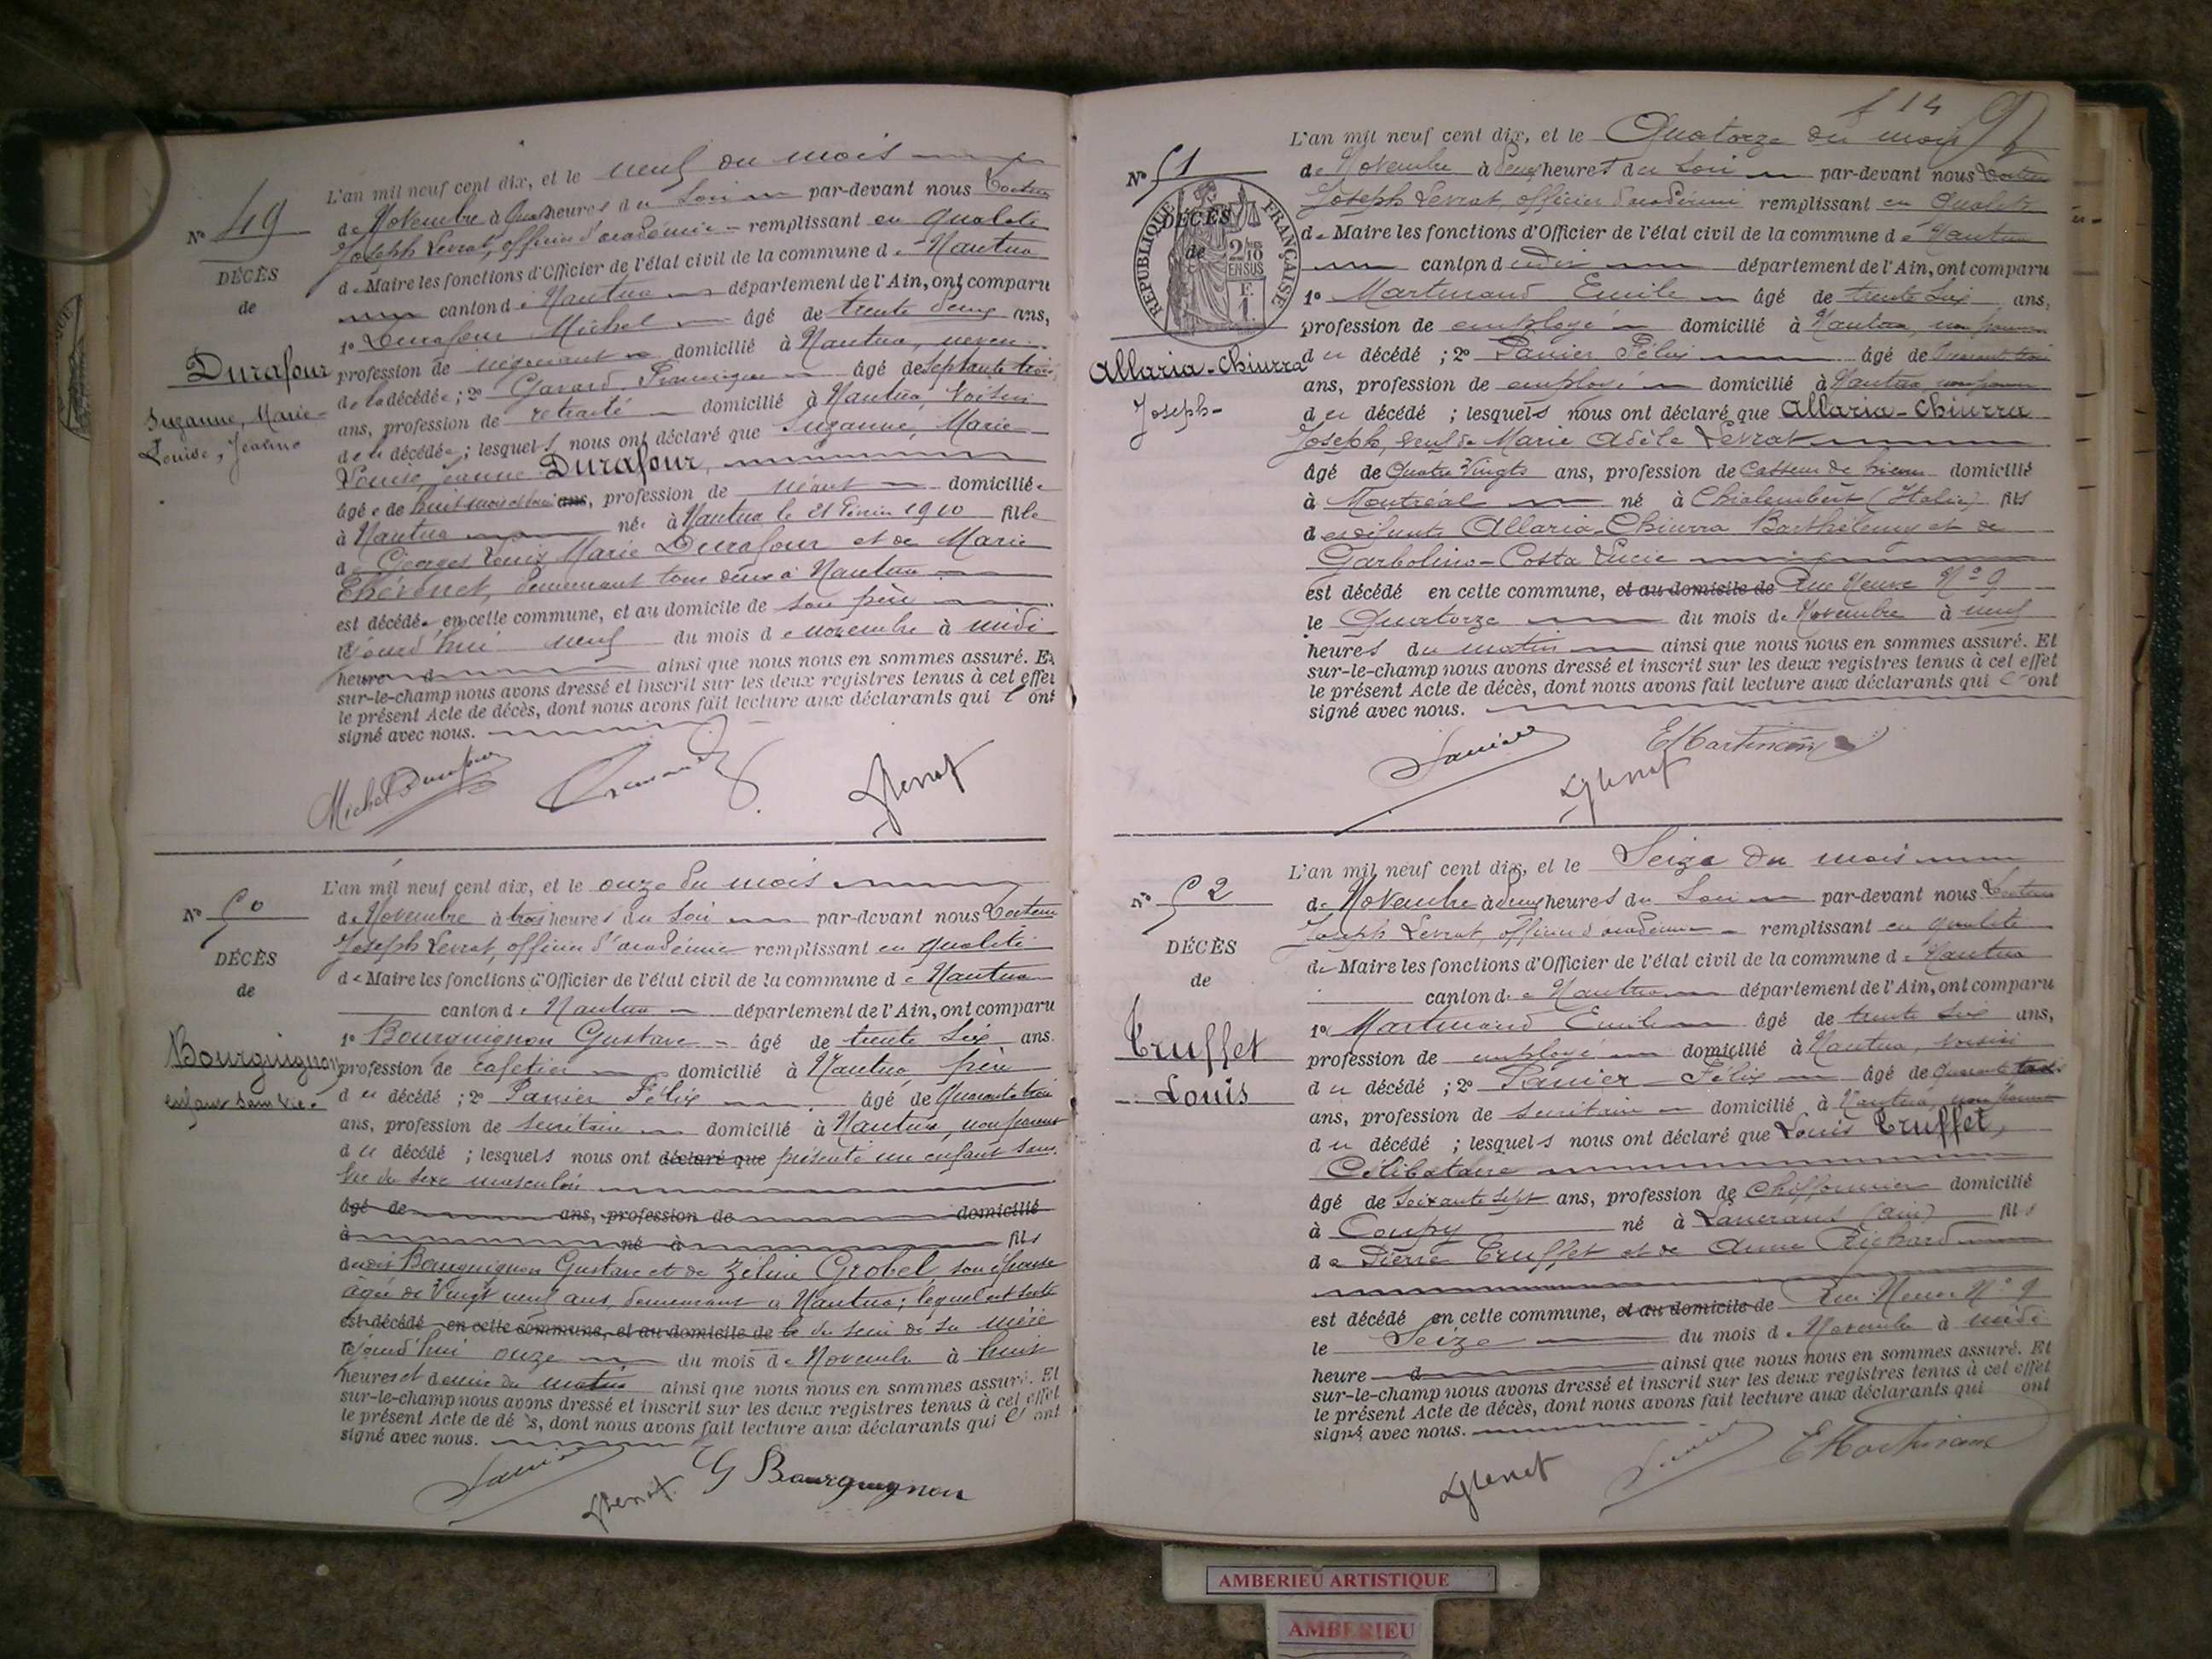 N° 49
DÉCÈS
de
Durafour
Suzanne, Marie-
Louise, Jeanne
L'an mil neuf cent dix, et le neuf du mois
de Novembre à quatre heures du soir par-devant nous Docteur
Joseph Levrat, officier d'académie remplissant en qualité
de Maire les fonctions d'Officier de l'état civil de la commune de Nantua
canton de Nantua département de l'Ain, ont comparu
1° Durafour Michel âgé de trente deux ans,
profession de négociant domicilié à Nantua, neveu
de la décédée ; 2° âgé de septante trois
ans, profession de retraité domicilié à Nantua, voisin
de la décédée ; lesquels nous ont déclaré que Suzanne, Marie
Louise, Jeanne Durafour,
âgée de huit mois ans, profession de néant domiciliée
à Nantua née à Nantua le 21 Février 1910 fille
de Georges Louis Marie Durafour et de Marie
Thévenet, demeurant tous deux à Nantua
est décédée en cette commune, et au domicile de son père
cejourd'hui neuf du mois de novembre à midi
heure d ainsi que nous nous en sommes assuré. Et
sur-le-champ nous avons dressé et inscrit sur les deux registres tenus à cet effet
le présent Acte de décès, dont nous avons fait lecture aux déclarants qui l'ont
signé avec nous.
Michel Durafour
JLevrat
N° 50
DÉCÈS
de
Bourguignon
enfant sans vie.
L'an mil neuf cent dix, et le onze du mois
de Novembre à trois heures du soir par-devant nous Docteur
Joseph Levrat, officier d'académie remplissant en qualité
de Maire les fonctions d'Officier de l'état civil de la commune de Nantua
canton de Nantua département de l'Ain, ont comparu
1° Bourguignon Gustave âgé de trente six ans.
profession de cafetier domicilié à Nantua, père
du décédé ; 2° Panier Félix âgé de quarante trois
ans, profession de secrétaire domicilié à Nantua, non parent
du décédé ; lesquels nous ont déclaré que présenté un enfant sans
vie du sexe masculin
âgé de ans, profession de domicilié
à né à fils
dudit Bourguignon Gustave et de Zéline Grobel, son épouse
âgée de vingt neuf ans, demeurant à Nantua ; lequel est sorti
est décédé en cette commune, et au domicile de du sein de sa mère
cejourd'hui onze du mois de Novembre à huit
heures et demie du matin ainsi que nous nous en sommes assuré. Et
sur-le-champ nous avons dressé et inscrit sur les deux registres tenus à cet effet
le présent Acte de décès, dont nous avons fait lecture aux déclarants qui l'ont
signé avec nous.
Panier
JLevrat
G Bourguignon
f 14
N° 51
RÉPUBLIQUE FRANÇAISE
DÉCÈS
de
2/10
EN SUS
F.
1.
Allaria-Chiurra
Joseph-
L'an mil neuf cent dix, et le Quatorze du mois
de Novembre à deux heures du soir par-devant nous Docteur
Joseph Levrat, officier d'académie remplissant en qualité
de Maire les fonctions d'Officier de l'état civil de la commune de Nantua
canton dudit département de l'Ain, ont comparu
1° Martinand Emile âgé de trente six ans,
profession de employé domicilié à Nantua, non parent
du décédé ; 2° Panier Félix âgé de quarante trois
ans, profession de employé domicilié à Nantua, non parent
du décédé ; lesquels nous ont déclaré que Allaria-Chiurra
Joseph, veuf de Marie Adèle Levrat
âgé de Quatre Vingts ans, profession de Casseur de pierres domicilié
à Montréal né à Chialembert (Italie) fils
des défunts Allaria-Chiurra Barthélemy et de
Garbolino-Costa Lucie
est décédé en cette commune, et au domicile de Rue Neuve N° 9
le Quatorze du mois de Novembre à neuf
heures du matin ainsi que nous nous en sommes assuré. Et
sur-le-champ nous avons dressé et inscrit sur les deux registres tenus à cet effet
le présent Acte de décès, dont nous avons fait lecture aux déclarants qui l'ont
signé avec nous.
Panier
EMartinand
JLevrat
N° 52
DÉCÈS
de
Truffet
Louis
L'an mil neuf cent dix, et le Seize du mois
de Novembre à deux heures du soir par-devant nous Docteur
Joseph Levrat, officier d'académie remplissant en qualité
de Maire les fonctions d'Officier de l'état civil de la commune de Nantua
canton de Nantua département de l'Ain, ont comparu
1° Martinand Emile âgé de trente six ans,
profession de employé domicilié à Nantua, voisin
du décédé ; 2° Panier Félix âgé de quarante trois
ans, profession de secrétaire domicilié à Nantua, non parent
du décédé ; lesquels nous ont déclaré que Louis Truffet,
Célibataire
âgé de soixante sept ans, profession de chiffonnier domicilié
à Coupy né à Lancrans (Ain) fils
de Pierre Truffet et de Anne Richard
est décédé en cette commune, et au domicile de Rue Neuve N° 9
le Seize du mois de Novembre à midi
heure d ainsi que nous nous en sommes assuré. Et
sur-le-champ nous avons dressé et inscrit sur les deux registres tenus à cet effet
le présent Acte de décès, dont nous avons fait lecture aux déclarants qui ont
signé avec nous.
JLevrat
EMartinand
AMBERIEU ARTISTIQUE
AMBERIEU